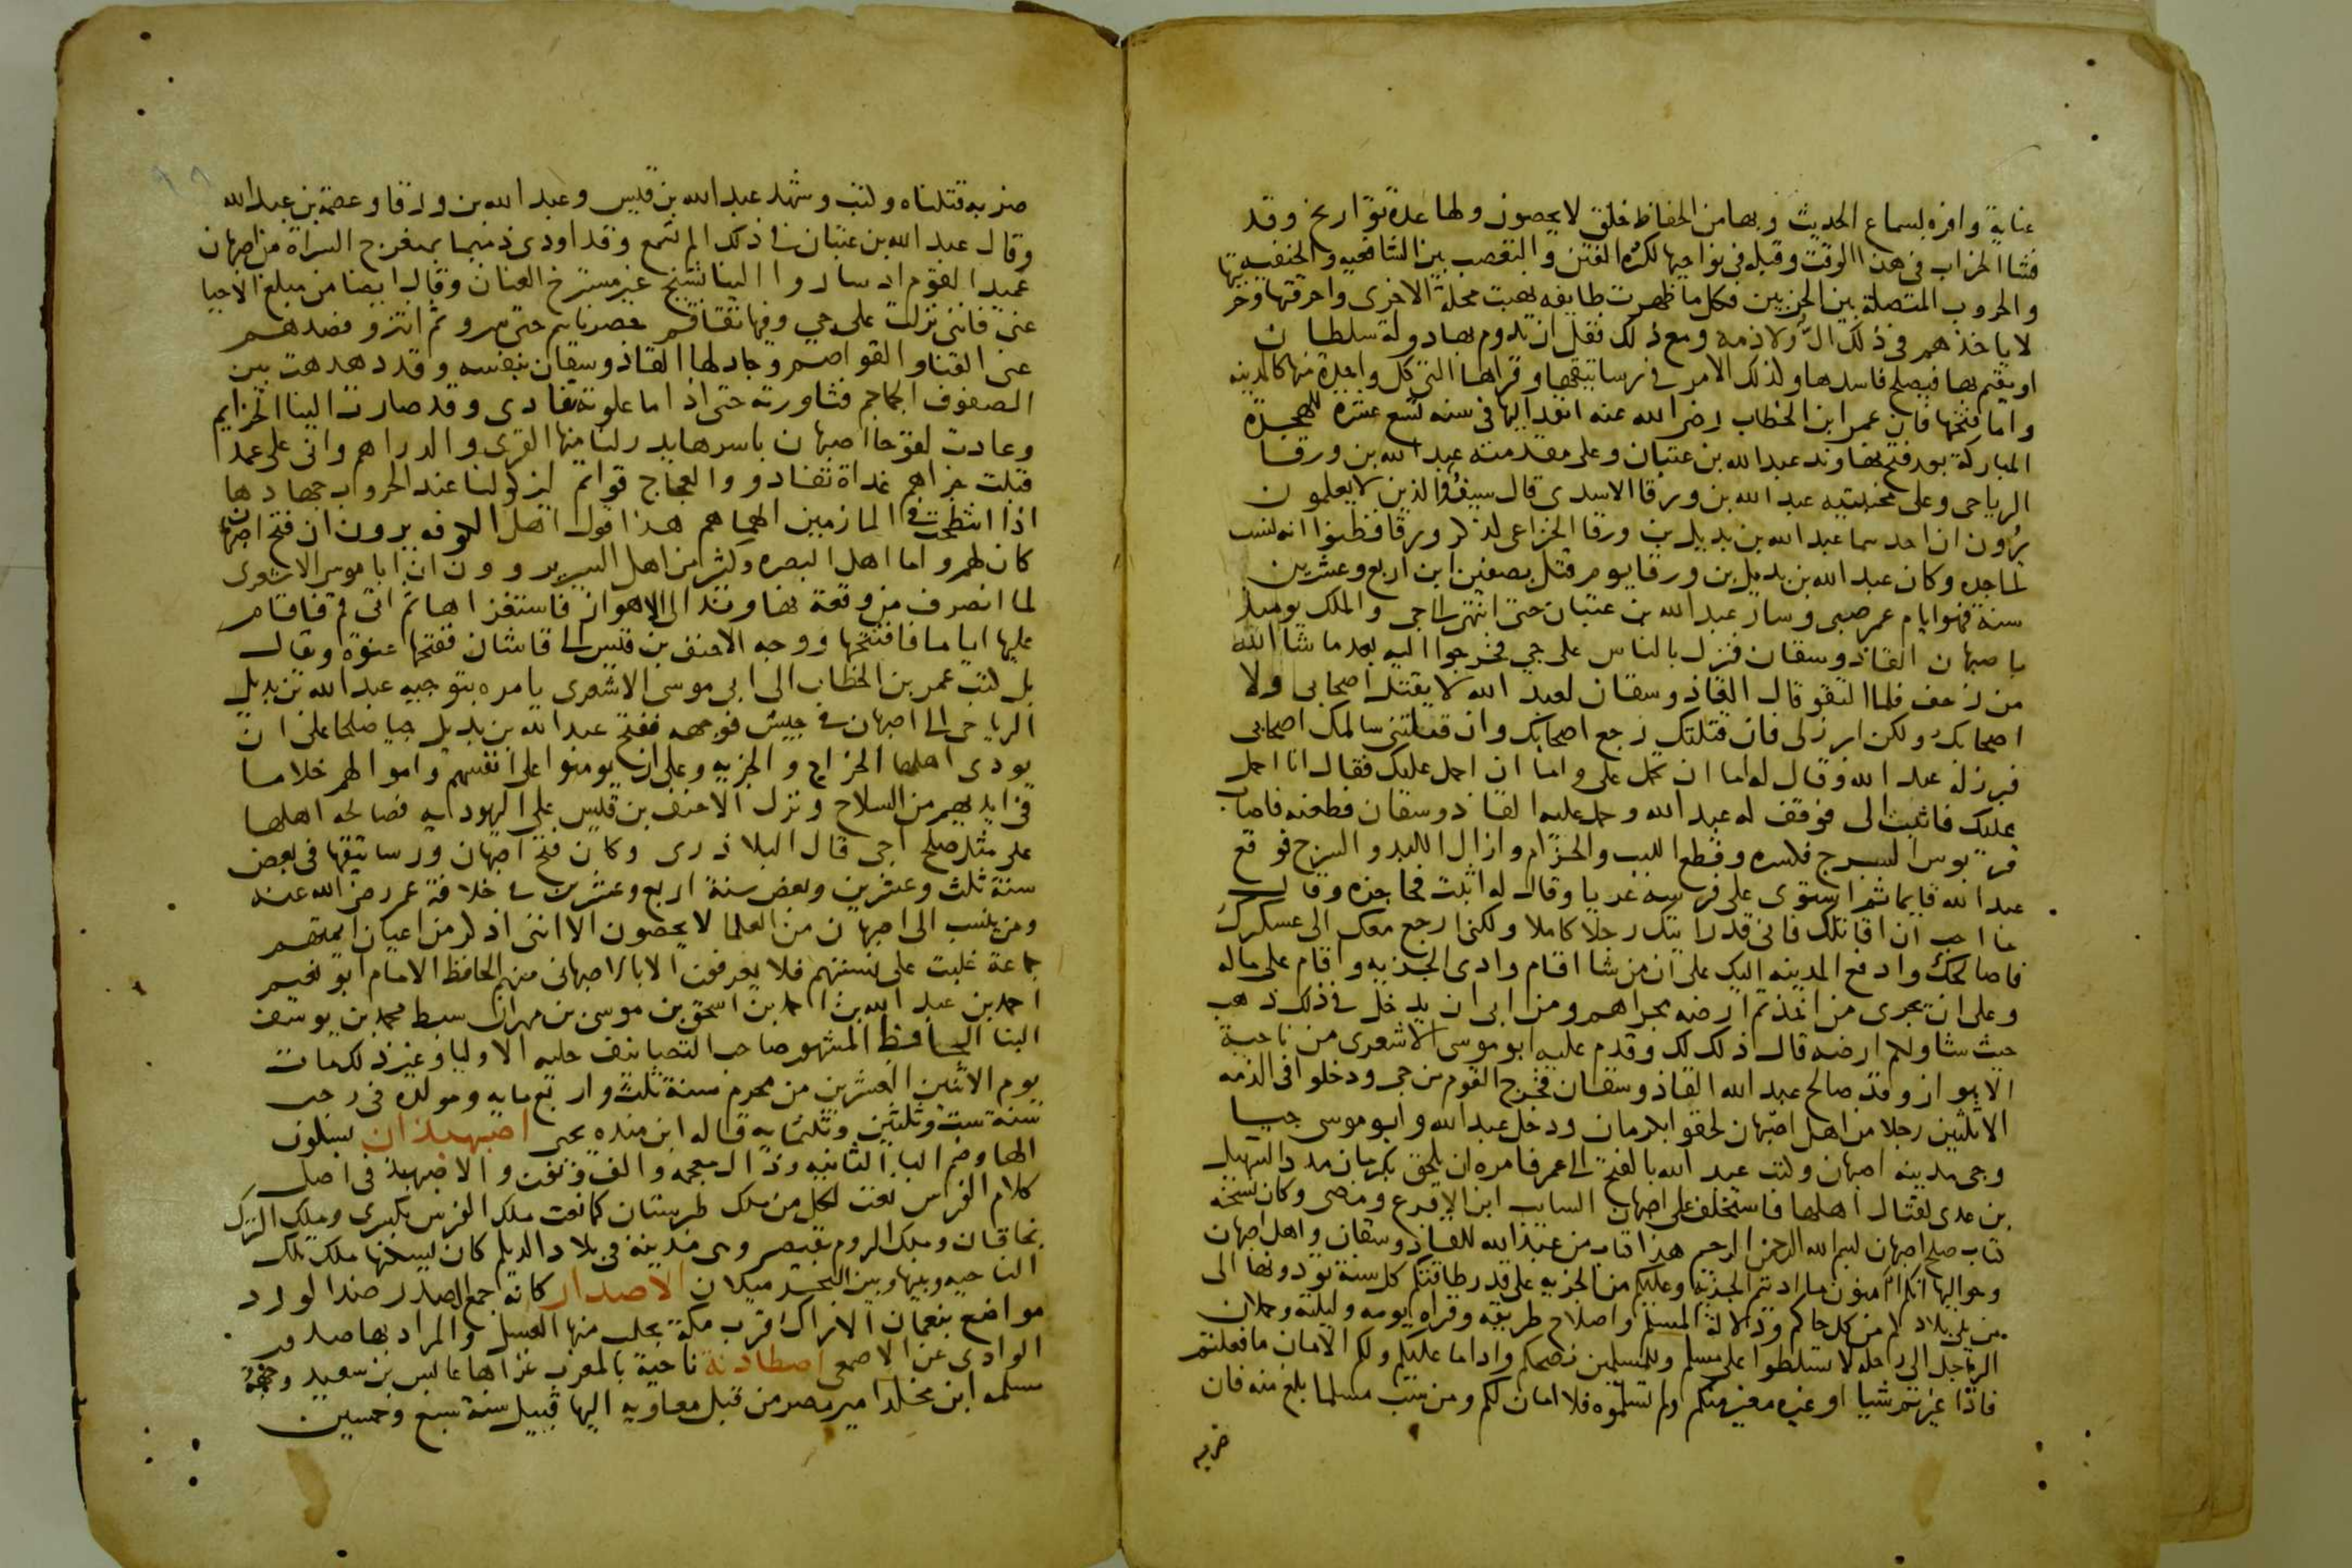 عناية وافرة لسماع الحديث وبها من الحفاظ خلق لا يحصون ولها عدة تواريخ وقد
فشا الخراب في هذا الوقت وقبله في نواحيها لكثرة الفتن والتعصب بين الشافعيه والحنفيه
والحروب المتصلة بين الحزبين فكل ما ظهرت طايفه نهبت محلة الاخرى واحرقتها وخر
لا ياخذهم في ذلك الّ ولا ذمه ومع ذلك فقل ان يدوم بها دولة سلطان
او يقيم بها فيصلح فاسدها ولذلك الامر في رساتيقها وقراها التي كل واحدة منها كالمدينه
واما فتحها فان عمر ابن الخطاب رضي الله عنه انفد اليها في سنه تسع عشرة للهجرة
المباركة بعد فتح نهاوند عبد الله بن عتبان وعلى مقدمته عبد الله بن ورقا
الرياحي وعلى مجنبتيه عبد الله بن ورقا الاسدي قال سيفٌ والذين لا يعلمون
يرون ان احدهما عبد الله بن بديل بن ورقا الخزاعي لذكر ورقا فظنوا انه نسب
لجده وكان عبد الله بن بديل بن ورقا يوم قتل بصفين ابن اربع وعشرين
سنة فهو ايام عمر صبي وسار عبد الله بن عتبان حتى انتهى الى جي والملك يوميذ
باصبهان الفاذوسفان فنزل بالناس على جي فخرجوا اليه بعد ما شا الله
من زحف فلما التقو قال الفاذوسفان لعبد الله لا يقتل اصحابي ولا
اصحابك ولكن ابرز لي فان قتلتك رجع اصحابك وان قتلتني سالمك اصحابي
فبرز له عبد الله وقال له اما ان تحمل علي واما ان احمل عليك فقال انا احمل
عليك فاثبت لي فوقف له عبد الله وحمل عليه الفاذوسفان فطعنه فاصاب
قربوس السرج فكسره وقطع اللبب والحزام وازال اللبد والسرج فوقع
عبد الله قايما ثم استوى على فرسه عريا وقال له اثبت فحاجزه وقال
ما احب ان اقاتلك فاني قد رايتك رجلا كاملا ولكني ارجع معك الى عسكرك
فاصالحك وادفع المدينه اليك على ان من شا اقام وادى الجزيه واقام على ماله
وعلى ان يجري من اخذتم ارضه مجراهم ومن ابى ان يدخل في ذلك ذهب
حيث شا ولكم ارضه قال ذلك لك وقدم عليه ابو موسى الاشعري من ناحية
الاهواز وقد صالح عبد الله الفاذوسفان فخرج القوم من جي ودخلوا في الذمه
الا ثلثين رجلا من اهل اصبهان لحقوا بكرمان ودخل عبد الله وابو موسى جيا
وجي مدينه اصبهان وكتب عبد الله بالفتح الى عمر فامره ان يلحق بكرمان مددا لسهيل
بن عدي لقتال اهلها فاستخلف على اصبهان السايب ابن الاقرع ومضى وكان نسخه
كتاب صلح اصبهان بسم الله الرحمن الرحيم هذا كتاب من عبد الله للفاذوسفان واهل اصبهان
وحواليها انكم آمنون ما ادتيم الجزيه وعليكم من الجزيه على قدر طاقتكم كل سنة تودونها الى
من يلي بلادكم من كل حالم ودلالة المسلم واصلاح طريقه وقراه يومه وليلته وحملان
الراجل الى راحله لا تسلطوا على مسلم وللمسلمين نصحكم واداما عليكم ولكم الامان ما فعلتم
فاذا غيرتم شيا او غيره مغير منكم ولم تسلموه فلا امان لكم ومن سب مسلما بلغ منه فان
ضربه
ضربه قتلناه وكتب وشهد عبد الله بن قيس وعبد الله بن ورقا وعصمة بن عبد الله
وقال عبد الله بن عتبان في ذلك الم تسمع وقد اودى ذميما بمنعرج السراة من اصبهان
عميد القوم اذ ساروا الينا بشيخ غير مسترخ العنان وقال ايضا من مبلغ الاحيا
عني فانني نزلت على جي وفيها تفاقم حصرناهم حتى سروا ثم انتزوا فصدهم
عني القنا والقواصم وجاد لها الفاذوسفان بنفسه وقد دهدهت بين
الصفوف الجماجم فثاورته حتى اذا ما علوته تفادى وقد صارت الينا الخزايم
وعادت لقوحا اصبهان باسرها يدر لنا منها القرى والدراهم واني على عمد
قبلت جزاهم غداة تفادوا والعجاج قواتم ليزكوا لنا عند الحروب جهادها
اذا انتطحت في المازمين الهماهم هذا قول اهل الكوفه يرون ان فتح اصبهان
كان لهم واما اهل البصره وكثير من اهل السير يروون ان ابا موسى الاشعري
لما انصرف من وقعة نهاوند الى الاهواز فاستقراها ثم اتى قم فاقام
عليها اياما فافتتحها ووجه الاحنف بن قيس الى قاشان ففتحها عنوة ويقال
بل كتب عمر بن الخطاب الى ابي موسى الاشعري يامره بتوجيه عبد الله بن بديل
الرياحي الى اصبهان في جيش فوجهه ففتح عبد الله بن بديل جيا صلحا على ان
يودي اهلها الخراج والجزيه وعلى ان يومنوا على انفسهم واموالهم خلا ما
في ايديهم من السلاح ونزل الاحنف بن قيس على اليهوديه فصالحه اهلها
على مثل صلح جي قال البلاذري وكان فتح اصبهان ورساتيقها في بعض
سنة ثلث وعشرين وبعض سنة اربع وعشرين في خلافة عمر رضي الله عنه
ومن ينسب الى اصبهان من العلما لا يحصون الا انني اذكر من اعيان ايمتهم
جماعة غلبت على نسبتهم فلا يعرفون الا بالاصبهاني منهم الحافظ الامام ابو نعيم
احمد بن عبد الله بن احمد بن اسحق بن موسى بن مهران سبط محمد بن يوسف
البنا الحافظ المشهور صاحب التصانيف حليه الاوليا وغير ذلك مات
يوم الاثنين العشرين من محرم سنة ثلث واربع مايه ومولده في رجب
سنة ست وثلثين وثلثمايه قاله ابن منده يحيى اصبهبذان بسكون
الها وضم البا الثانيه وذال معجمه والف ونون والاصبهبذ في اصل
كلام الفرس نعت لكل من ملك طبرستان كما نعت ملك الفرس بكسرى وملك الترك
بخاقان وملك الروم بقيصر وهي مدينة في بلاد الديلم كان يسكنها ملك تلك
الناحيه وبينها وبين البحر ميلان الاصدار كانه جمع الصدر ضد الورد
مواضع بنعمان الاراك قرب مكة يجلب منها العسل والمراد بها صدور
الوادي عن الاصمعي اصطاذنة ناحية بالمغرب غزاها عابس بن سعيد وجهه
مسلمه ابن مخلد امير مصر من قبل معاويه اليها قبيل سنة سبع وخمسين